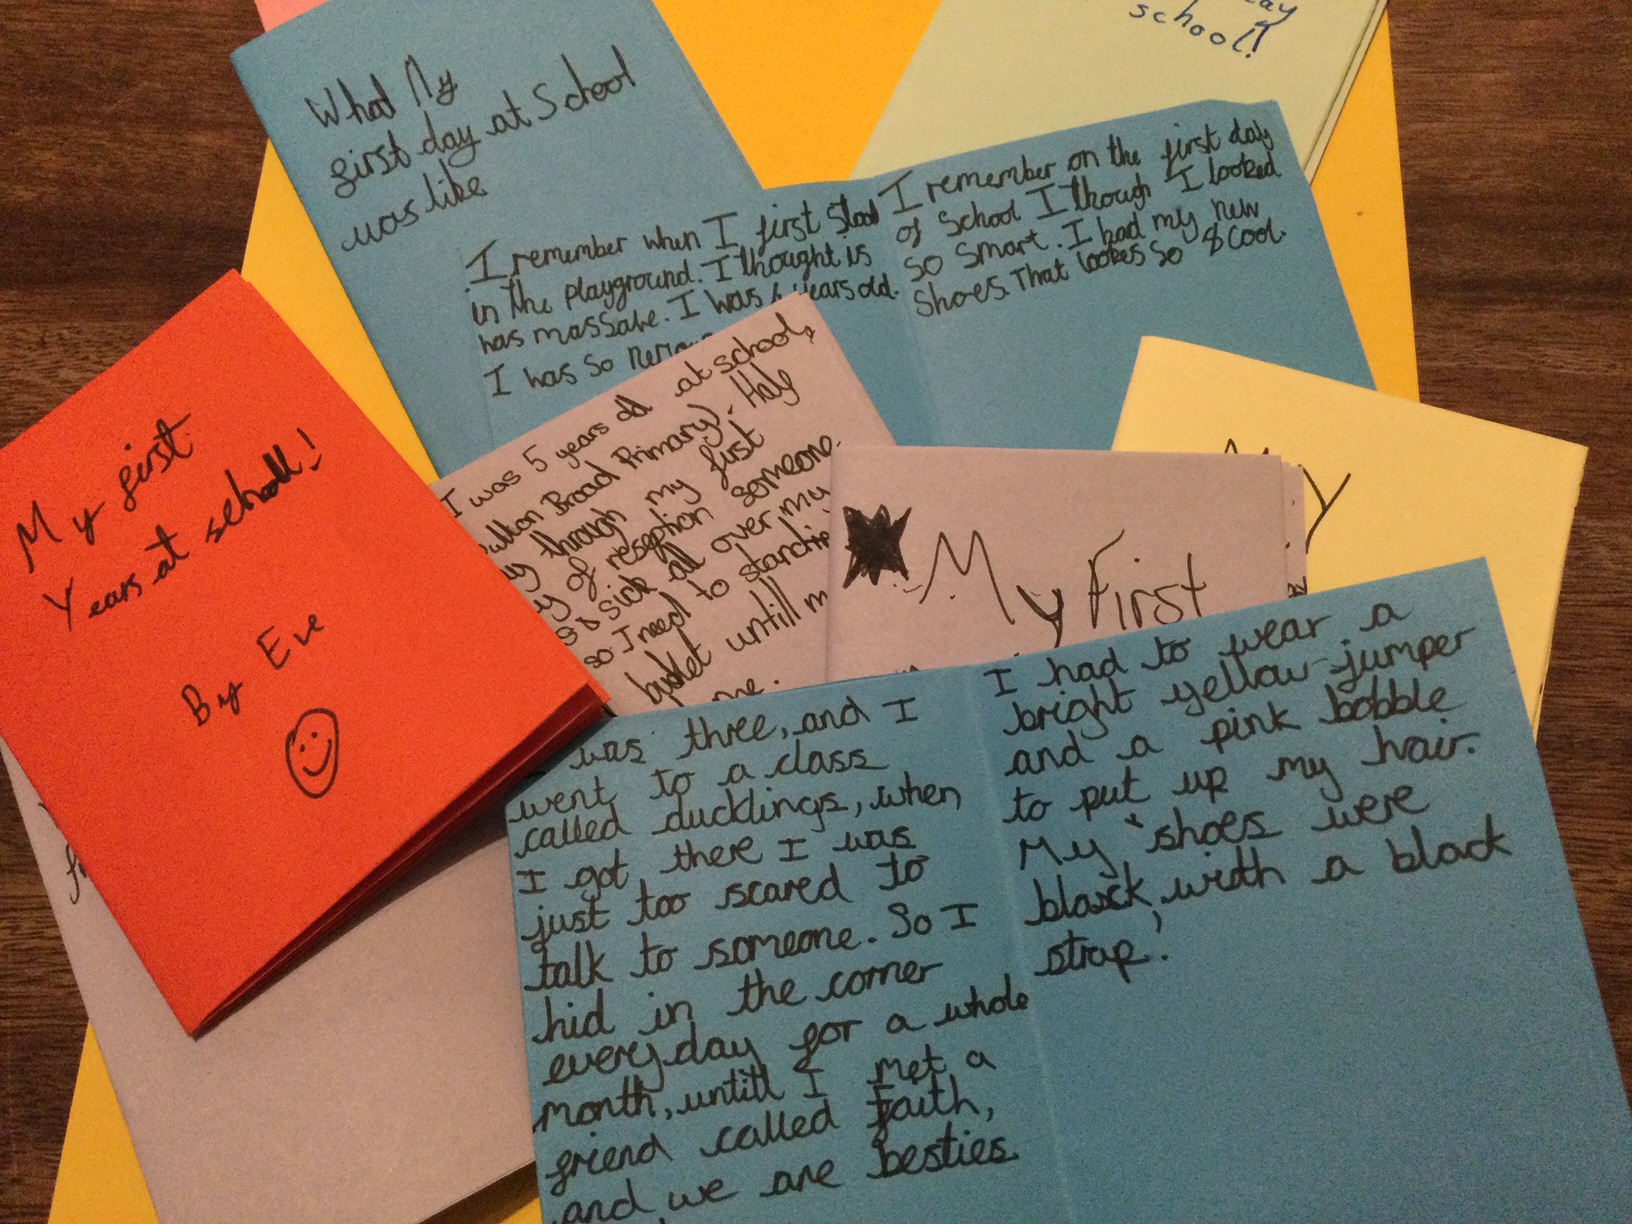 What My
first day at School
was like
ay
school!
I remember when I first stood
in the playground. I thought is
was massave. I was 4 years old.
I was so
I remember on the first day
of School I though I looked
so smart. I had my new
shoes That lookes so cool.
My first
Years at school!
By Eve
I was 5 years old at school,
Broad Primary). Half
through my first
of reseption someone
sick all over my
so I need to
bucket untill
me.
My First
My
was three, and I
went to a class
called ducklings, when
I got there I was
just too scared to
talk to someone. So I
hid in the corner
everyday for a whole
month, untill I met a
friend called Faith,
and we are besties
I had to wear a
bright yellow jumper
and a pink bobble
to put up my hair.
My shoes were
black, with a black
strap.